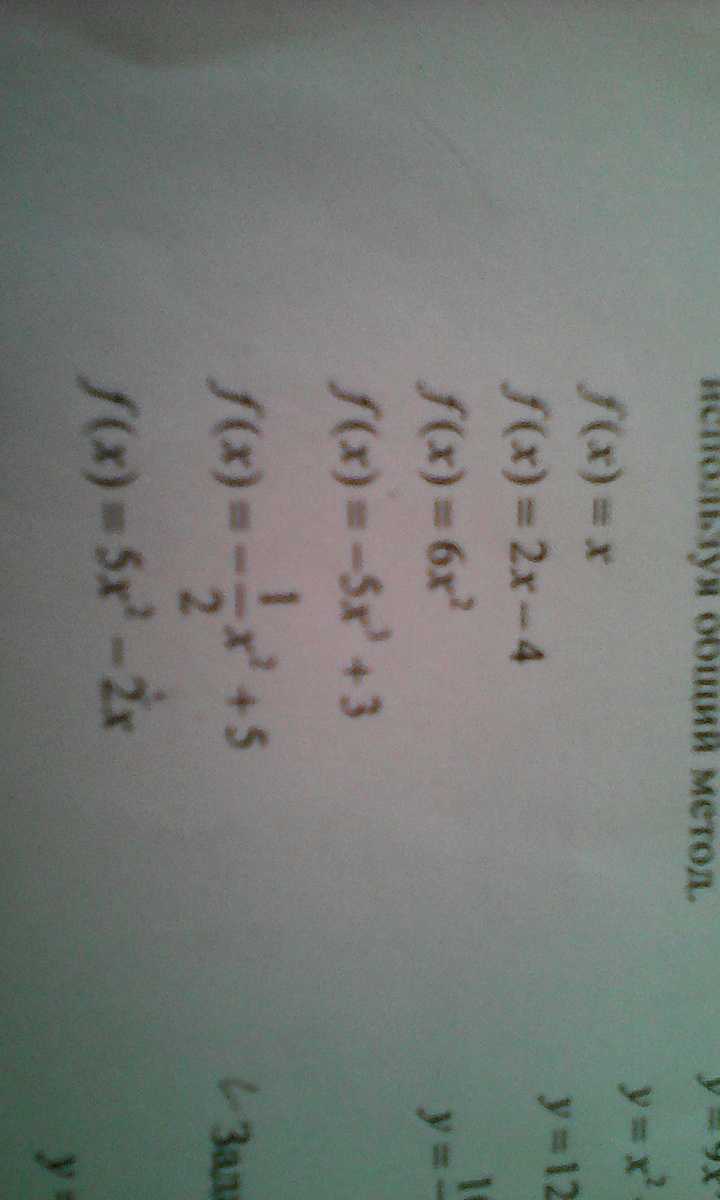 используя общий метод.
f(x) = x
f(x) = 2x − 4
f(x) = 6x²
f(x) = −5x² + 3
f(x) = −1/2 x² + 5
f(x) = 5x² − 2x
y = 9x
y = x²
y = 12
y = −
y =